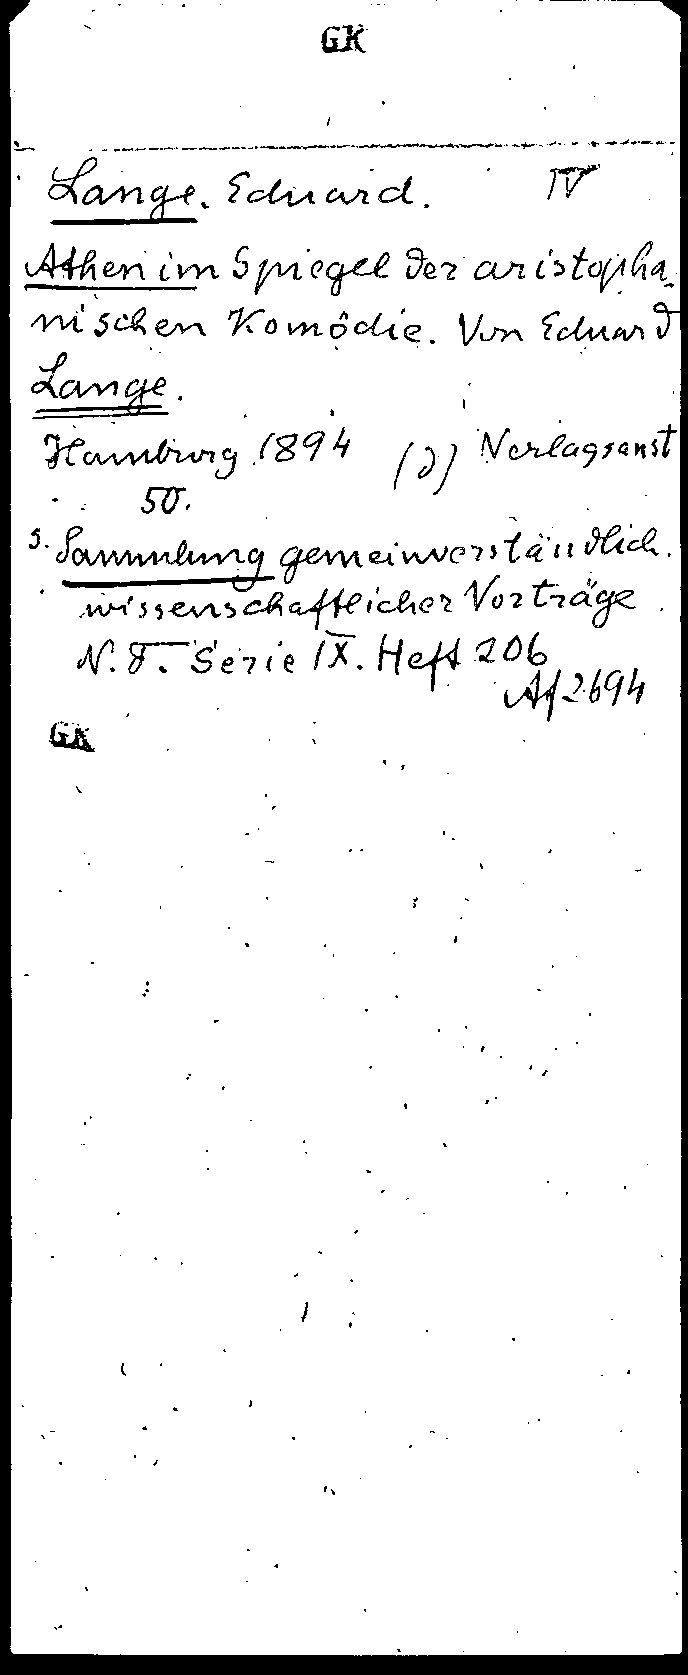 GK
Lange. Eduard. IV
Athen im Spiegel der aristopha-
nischen Komödie. Von Eduard
Lange.
Hamburg 1894 (8) Verlagsanst
50.
S. Sammlung gemeinverständlich.
wissenschaftlicher Vorträge
N. F. Serie IX. Heft 206
Af 2694
GK